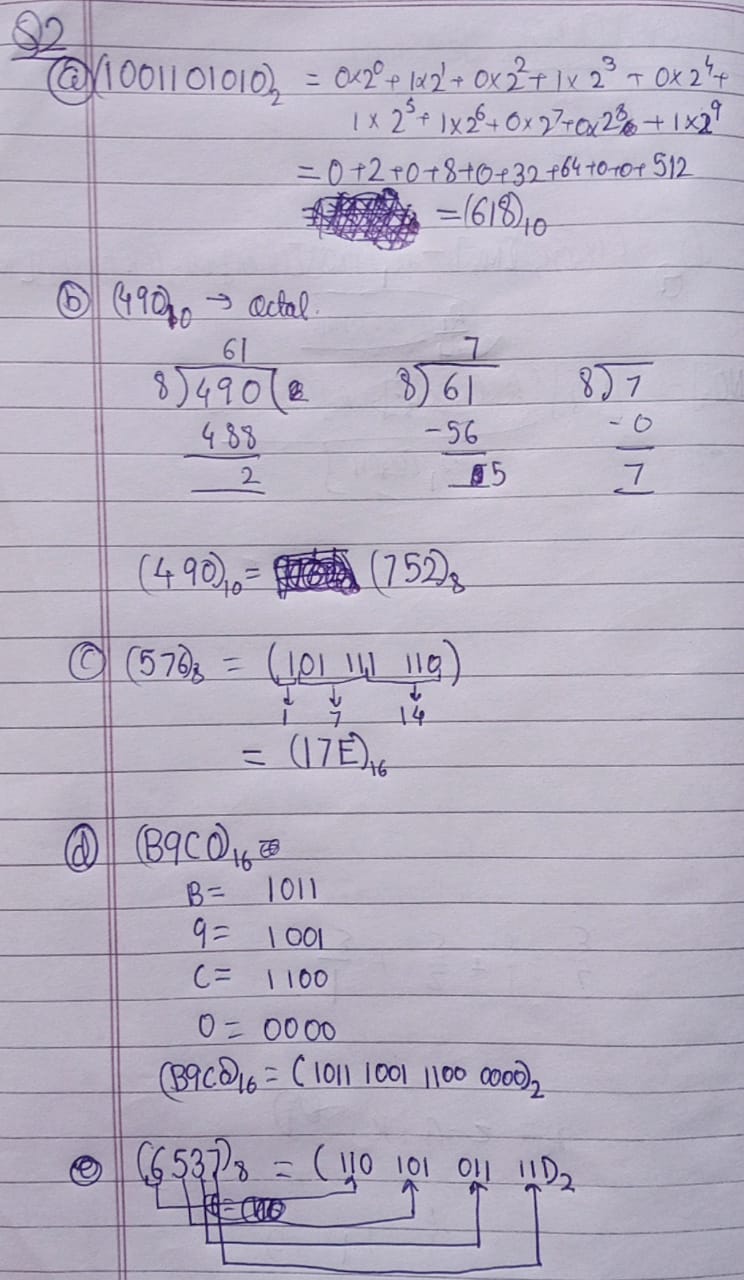 Q2
(a) (1001101010)₂ = 0x2⁰ + 1x2¹ + 0x2² + 1x2³ + 0x2⁴ +
1x2⁵ + 1x2⁶ + 0x2⁷ + 0x2⁸ + 1x2⁹
= 0+2+0+8+0+32+64+0+0+512
= (618)₁₀
(b) (490)₁₀ → Octal.
61 7
8)490( 8)61 8)7
488 -56 -0
2 5 7
(490)₁₀ = (752)₈
(c) (576)₈ = (101 111 110)
↓ ↓ ↓
1 7 14
= (17E)₁₆
(d) (B9C0)₁₆ =
B = 1011
9 = 1001
C = 1100
0 = 0000
(B9C0)₁₆ = (1011 1001 1100 0000)₂
(e) (6537)₈ = (110 101 011 111)₂